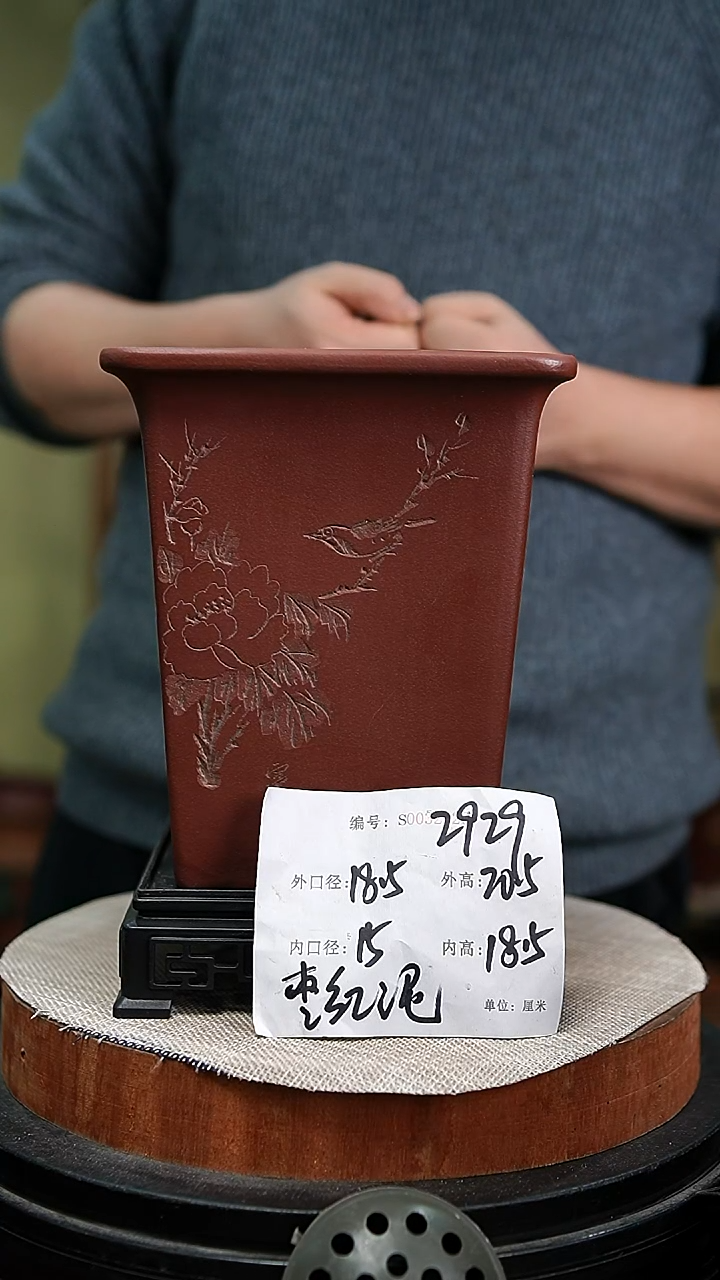 编号: S005 2929
外口径: 18.5 外高: 20.5
内口径: 15 内高: 18.5
枣红泥 单位: 厘米